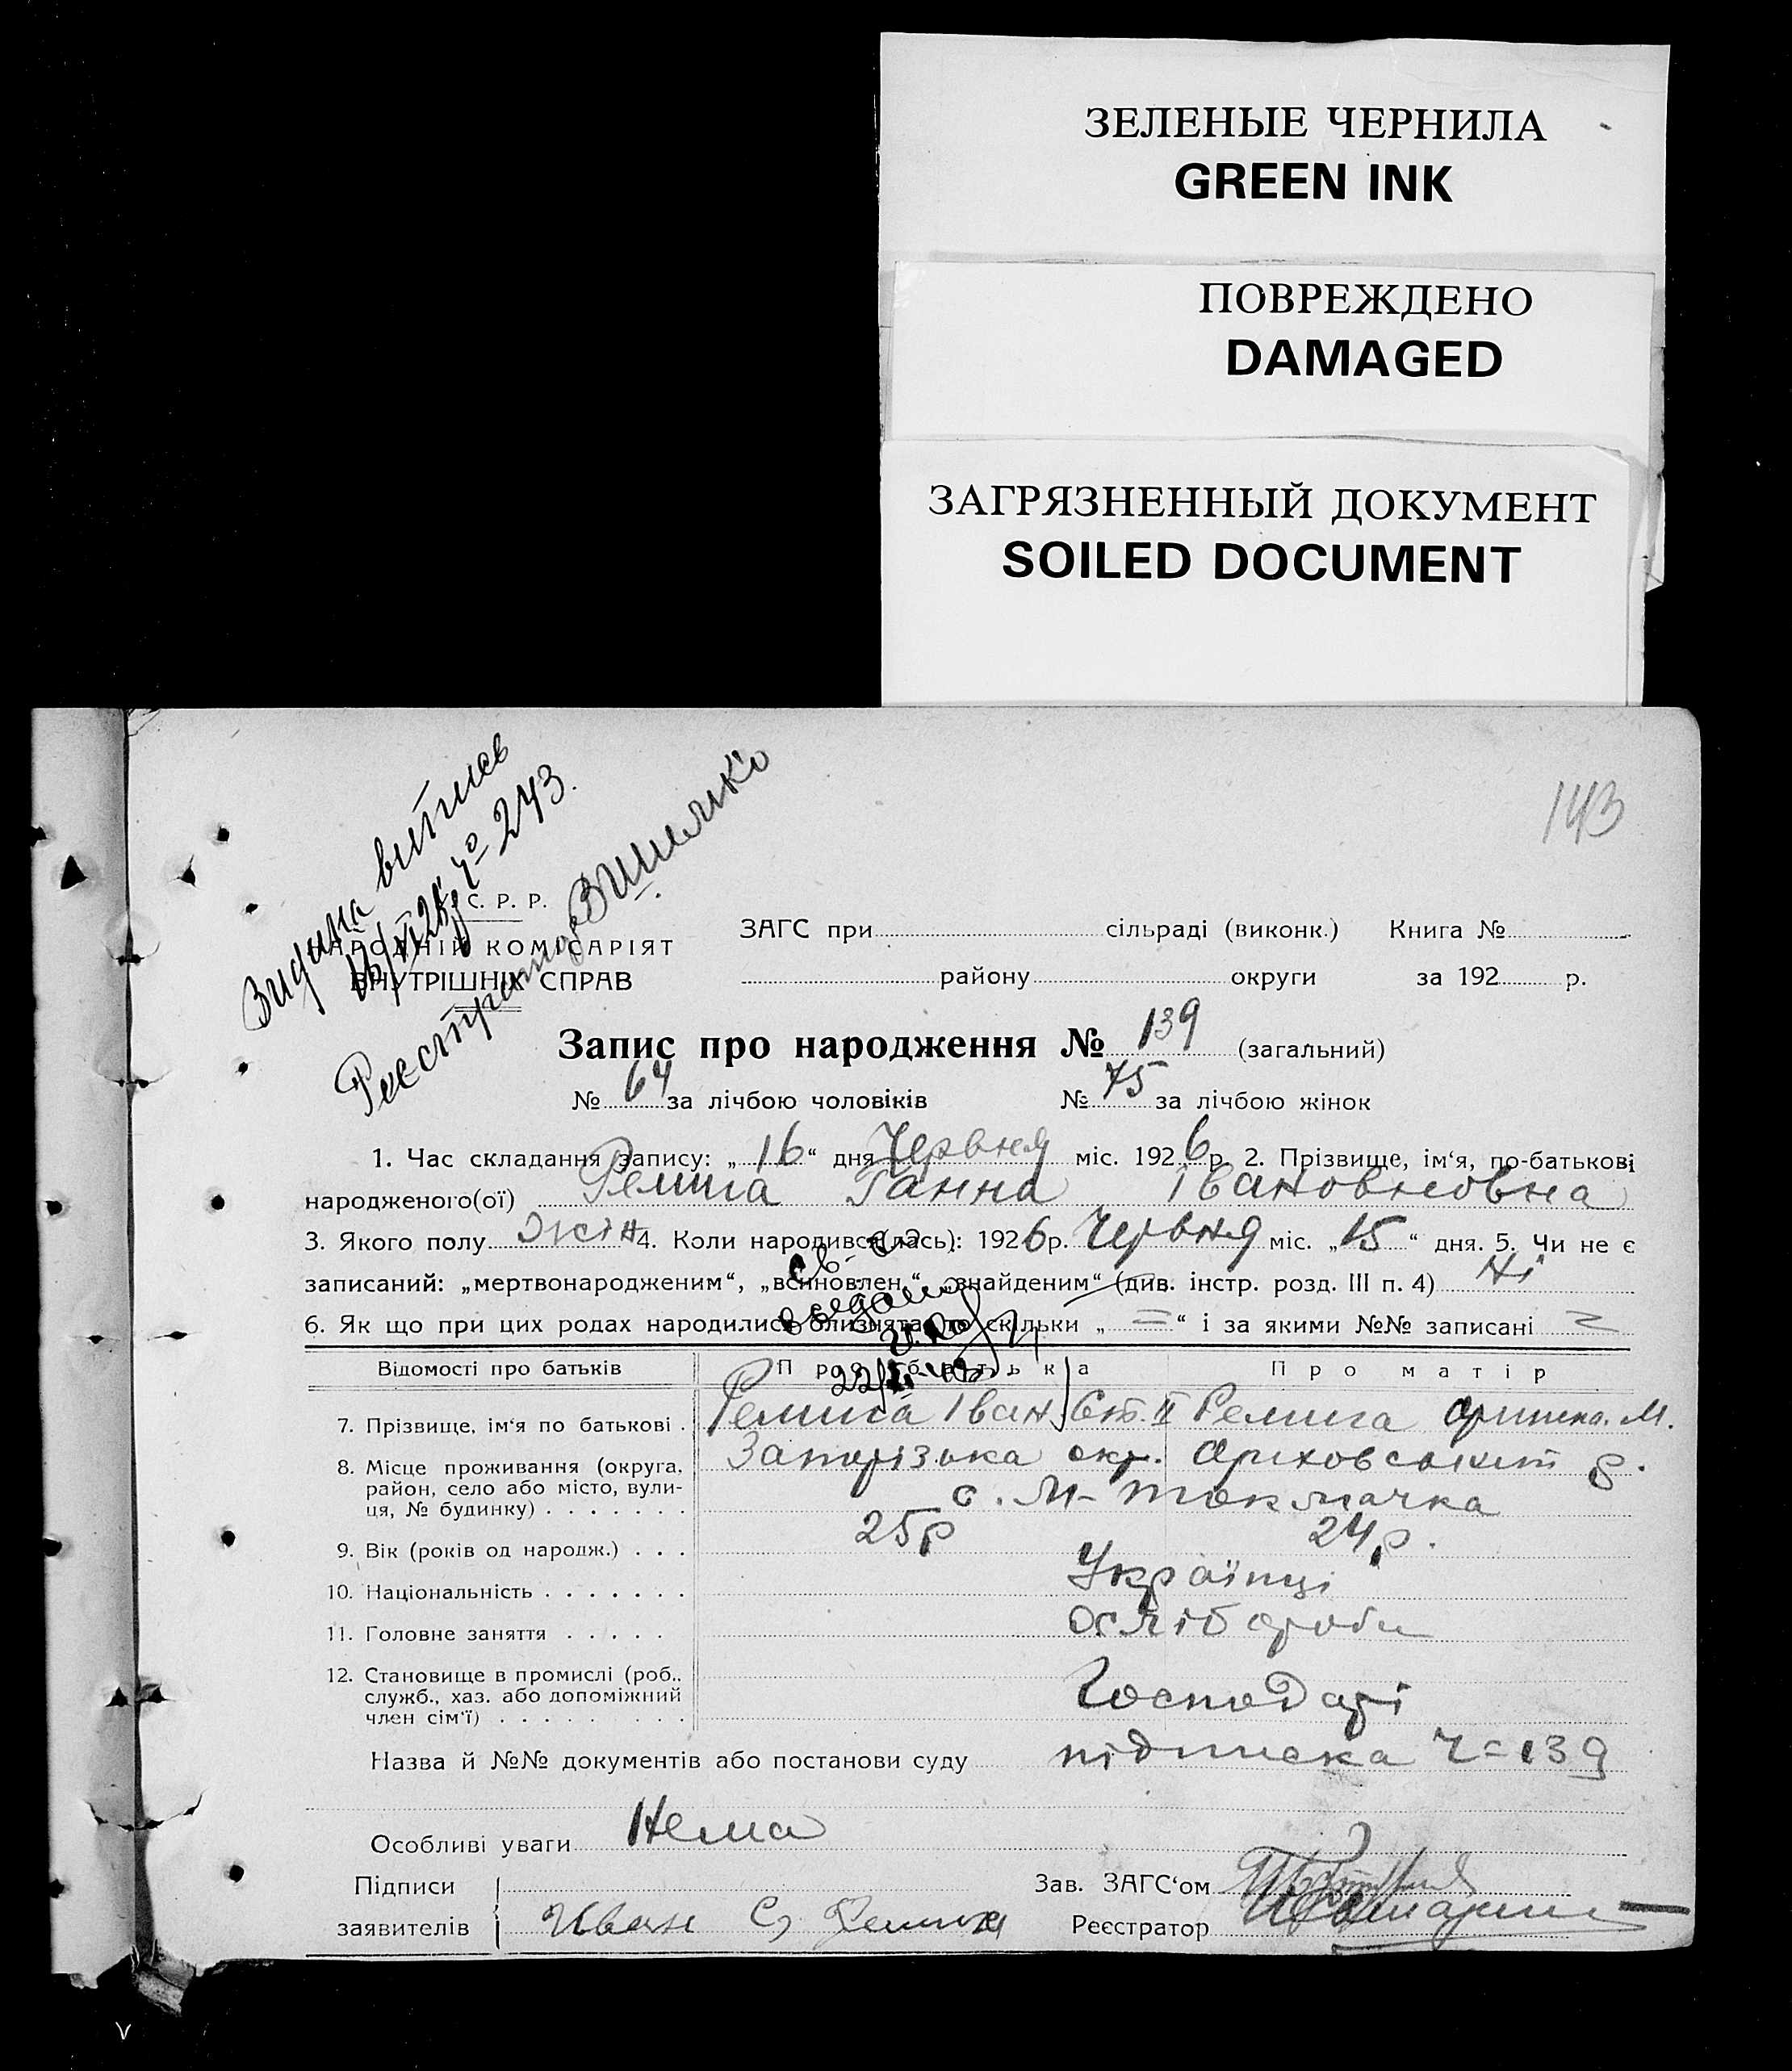 ЗЕЛЕНЫЕ ЧЕРНИЛА
GREEN INK
ПОВРЕЖДЕНО
DAMAGED
ЗАГРЯЗНЕННЫЙ ДОКУМЕНТ
SOILED DOCUMENT
143
Видана витись
243.
Реєстратор
С. Р. Р.
НАРОДНІЙ КОМІСАРІЯТ
ВНУТРІШНІХ СПРАВ
ЗАГС при сільраді (виконк.) Книга №
району округи за 192 р.
Запис про народження № 139 (загальний)
№ 64 за лічбою чоловіків № 75 за лічбою жінок
1. Час складання запису: „16“ дня Червня міс. 1926 р. 2. Прізвище, ім‘я, по-батькові
народженого(ої) Ремига Ганна Івановновна
3. Якого полу жін 4. Коли народився(лась): 1926 р. Червня міс. „15“ дня. 5. Чи не є
записаний: „мертвонародженим“, „всиновлен.“ „знайденим“ (див. інстр. розд. III п. 4) Ні
6. Як що при цих родах народились близнята, то скільки „=“ і за якими №№ записані =
Відомості про батьків Про батька Про матір
7. Прізвище, ім‘я по батькові . Ремига Іван Ст. Ремига Оришка. М.
8. Місце проживання (округа, район, село або місто, вулиця, № будинку) . . . . . . . Запорізька окр. Оріховський р.
с. М-Токмачка
9. Вік (років од народж.) . . . 25р 24р.
10. Національність . . . . . . . Українці
11. Головне заняття . . . . . хліборобы
12. Становище в промислі (роб.. служб., хаз. або допоміжний член сім‘ї) . . . . . . . . Господарі
Назва й №№ документів або постанови суду підписка Ч=139
Особливі уваги Нема
Підписи
заявителів Иван С, Ремига
Зав. ЗАГС‘ом
Реєстратор